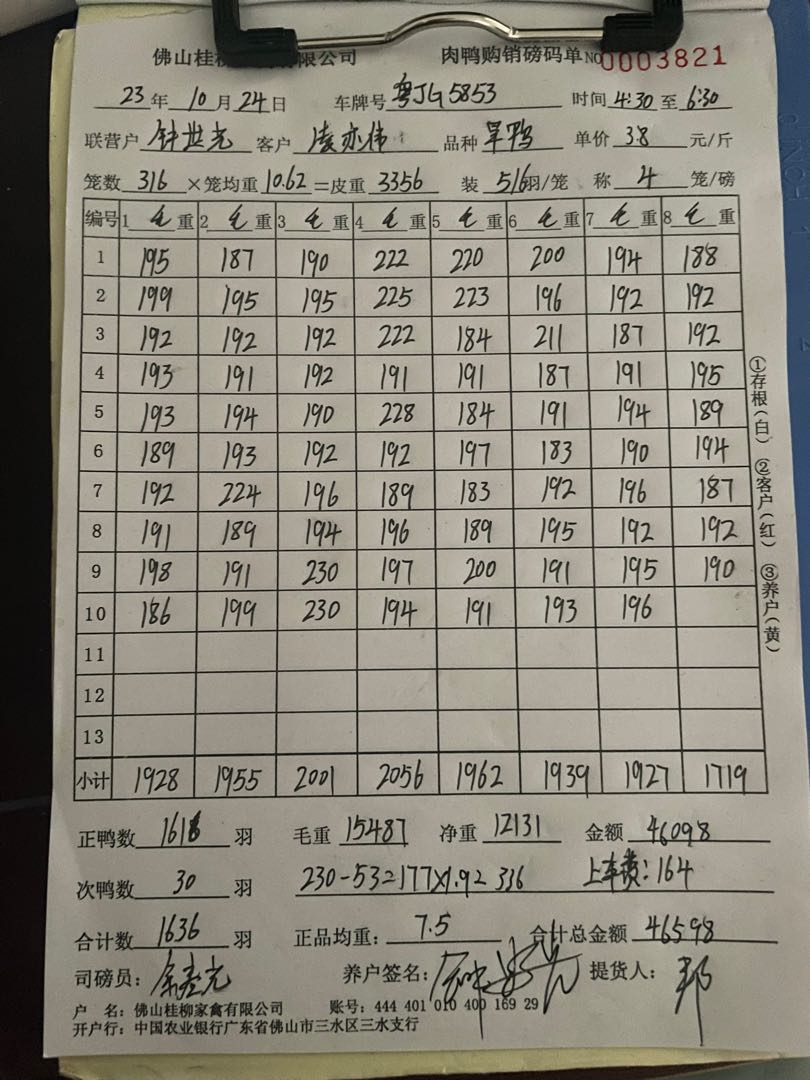 佛山桂柳 有限公司 肉鸭购销磅码单 NO 0003821
23 年 10 月 24 日 车牌号 粤JG5853 时间 4:30 至 6:30
联营户 钟世光 客户 凌亦伟 品种 旱鸭 单价 3.8 元/斤
笼数 316 ×笼均重 10.62 =皮重 3356 装 5/6 羽/笼 称 4 笼/磅
编号 1 毛 重 2 毛 重 3 毛 重 4 毛 重 5 毛 重 6 毛 重 7 毛 重 8 毛 重
1 195 187 190 222 220 200 194 188
2 199 195 195 225 223 196 192 192
3 192 192 192 222 184 211 187 192
4 193 191 192 191 191 187 191 195
5 193 194 190 228 184 191 194 189
6 189 193 192 192 197 183 190 194
7 192 224 196 189 183 192 196 187
8 191 189 194 196 189 195 192 192
9 198 191 230 197 200 191 195 190
10 186 199 230 194 191 193 196
11
12
13
小计 1928 1955 2001 2056 1962 1939 1927 1719
①存根(白) ②客户(红) ③养户(黄)
正鸭数 1616 羽 毛重 15487 净重 12131 金额 46098
次鸭数 30 羽 230-53=177×1.92 336 上车费:164
合计数 1636 羽 正品均重: 7.5 合计总金额 46598
司磅员: 养户签名: 提货人: 邦
户 名: 佛山桂柳家禽有限公司 账号: 444 401 010 400 169 29
开户行: 中国农业银行广东省佛山市三水区三水支行